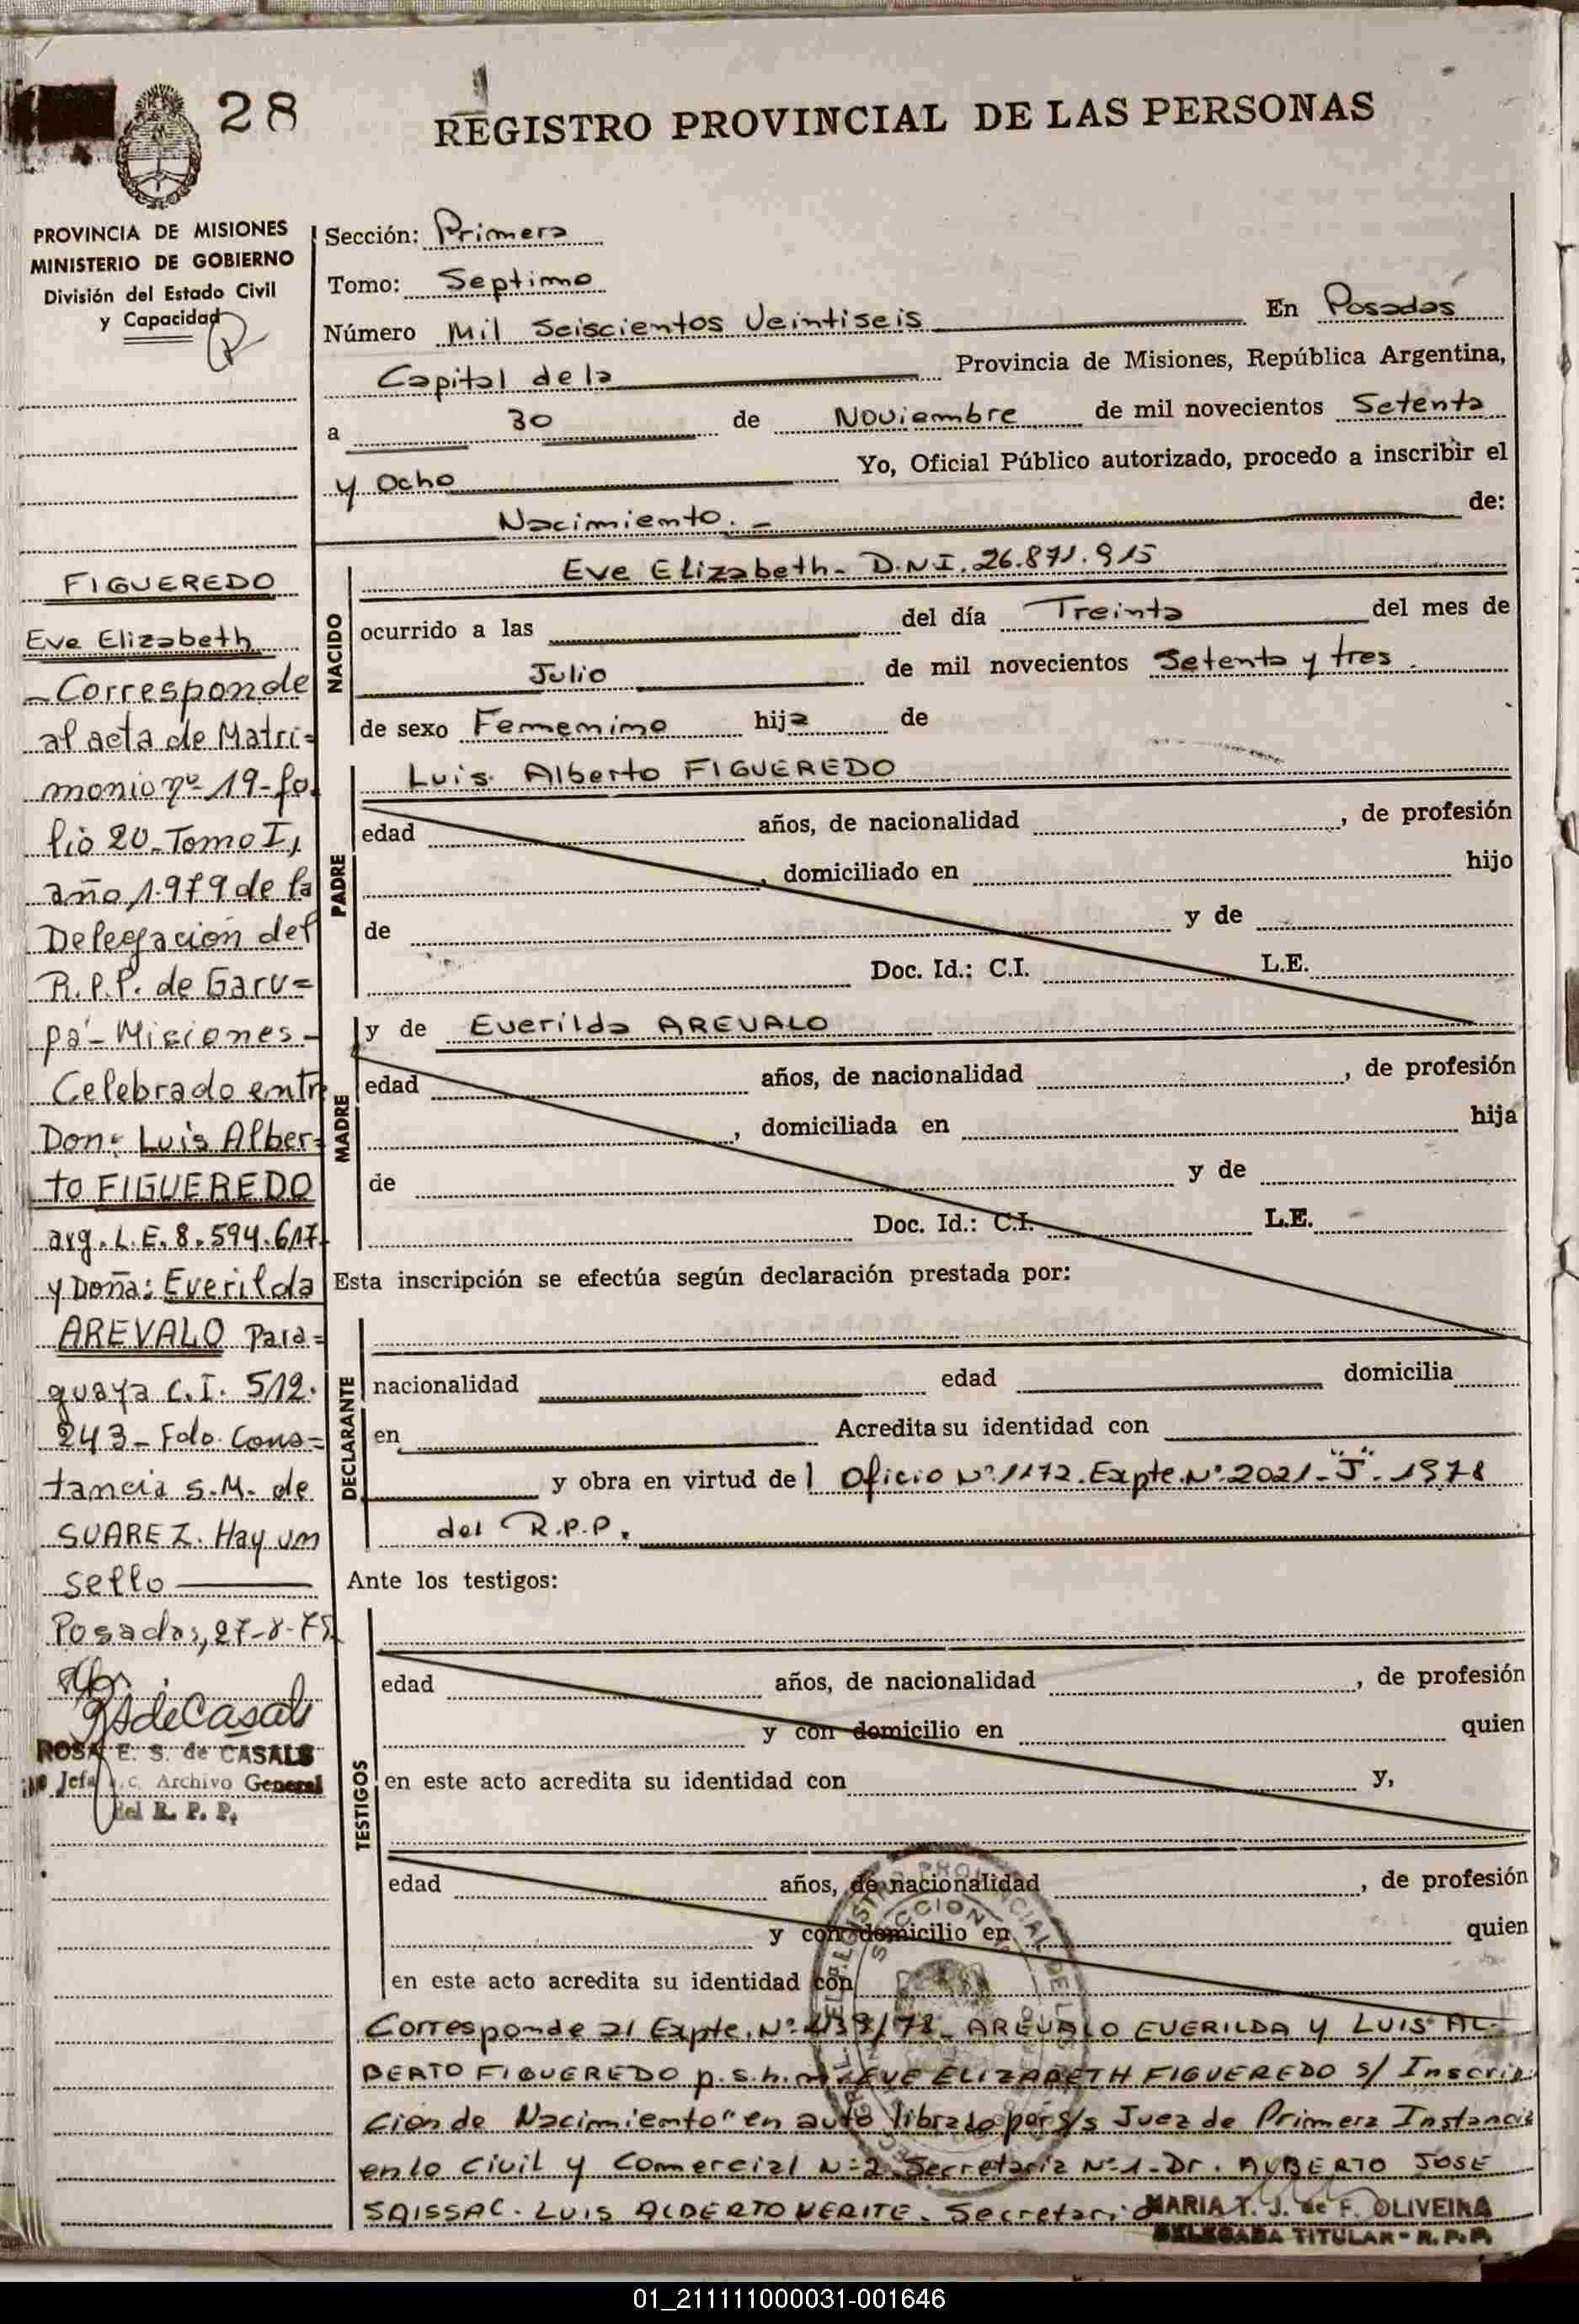 28
REGISTRO PROVINCIAL DE LAS PERSONAS
PROVINCIA DE MISIONES
MINISTERIO DE GOBIERNO
División del Estado Civil
y Capacidad
Sección: Primera
Tomo: Septimo
Número Mil Seiscientos Veintiseis En Posadas
Capital de la Provincia de Misiones, República Argentina,
a 30 de Noviembre de mil novecientos Setenta
y Ocho Yo, Oficial Público autorizado, procedo a inscribir el
Nacimiento. - de:
NACIDO
Eve Elizabeth - D.N.I. 26.871.915
ocurrido a las del día Treinta del mes de
Julio de mil novecientos Setenta y tres.
de sexo Femenino hija de
PADRE
Luis Alberto FIGUEREDO
edad años, de nacionalidad , de profesión
, domiciliado en hijo
de y de
Doc. Id.: C.I. L.E.
MADRE
y de Everilda AREVALO
edad años, de nacionalidad , de profesión
, domiciliada en hija
de y de
Doc. Id.: C.I. L.E.
Esta inscripción se efectúa según declaración prestada por:
DECLARANTE
nacionalidad edad domicilia
en Acredita su identidad con
y obra en virtud de l Oficio Nº 1172. Expte. Nº 2021-"J"-1978
del R.P.P.
Ante los testigos:
TESTIGOS
edad años, de nacionalidad , de profesión
y con domicilio en quien
en este acto acredita su identidad con y,
edad años, de nacionalidad , de profesión
y con domicilio en quien
en este acto acredita su identidad con
Corresponde al Expte. Nº /78 - AREVALO EVERILDA y LUIS AL-
BERTO FIGUEREDO p.s.h.m. EVE ELIZABETH FIGUEREDO s/ Inscrip
ción de Nacimiento" en auto librado por s/s Juez de Primera Instancia
en lo Civil y Comercial Nº 2 Secretaria Nº 1 - Dr. ALBERTO JOSE
SAISSAC - LUIS ALBERTO VERITE. Secretario
MARIA T. J. de F. OLIVEIRA
DELEGADA TITULAR - R. P. P.
FIGUEREDO
Eve Elizabeth
- Corresponde
al acta de Matri=
monio nº 19 - fo
lio 20 - Tomo I,
año 1.979 de la
Delegación del
R.P.P. de Garu=
pá - Misiones -
Celebrado entr
Don: Luis Alber=
to FIGUEREDO
arg. L.E. 8.594.617
y Doña: Everilda
AREVALO Para=
guaya C.I. 512.
243 - Fdo. Cons=
tancia S.M. de
SUAREZ. Hay un
sello
Posadas, 27-8-79
ROSA E. S. de CASALS
Jefa Archivo General
del R. P. P.
01_211111000031-001646